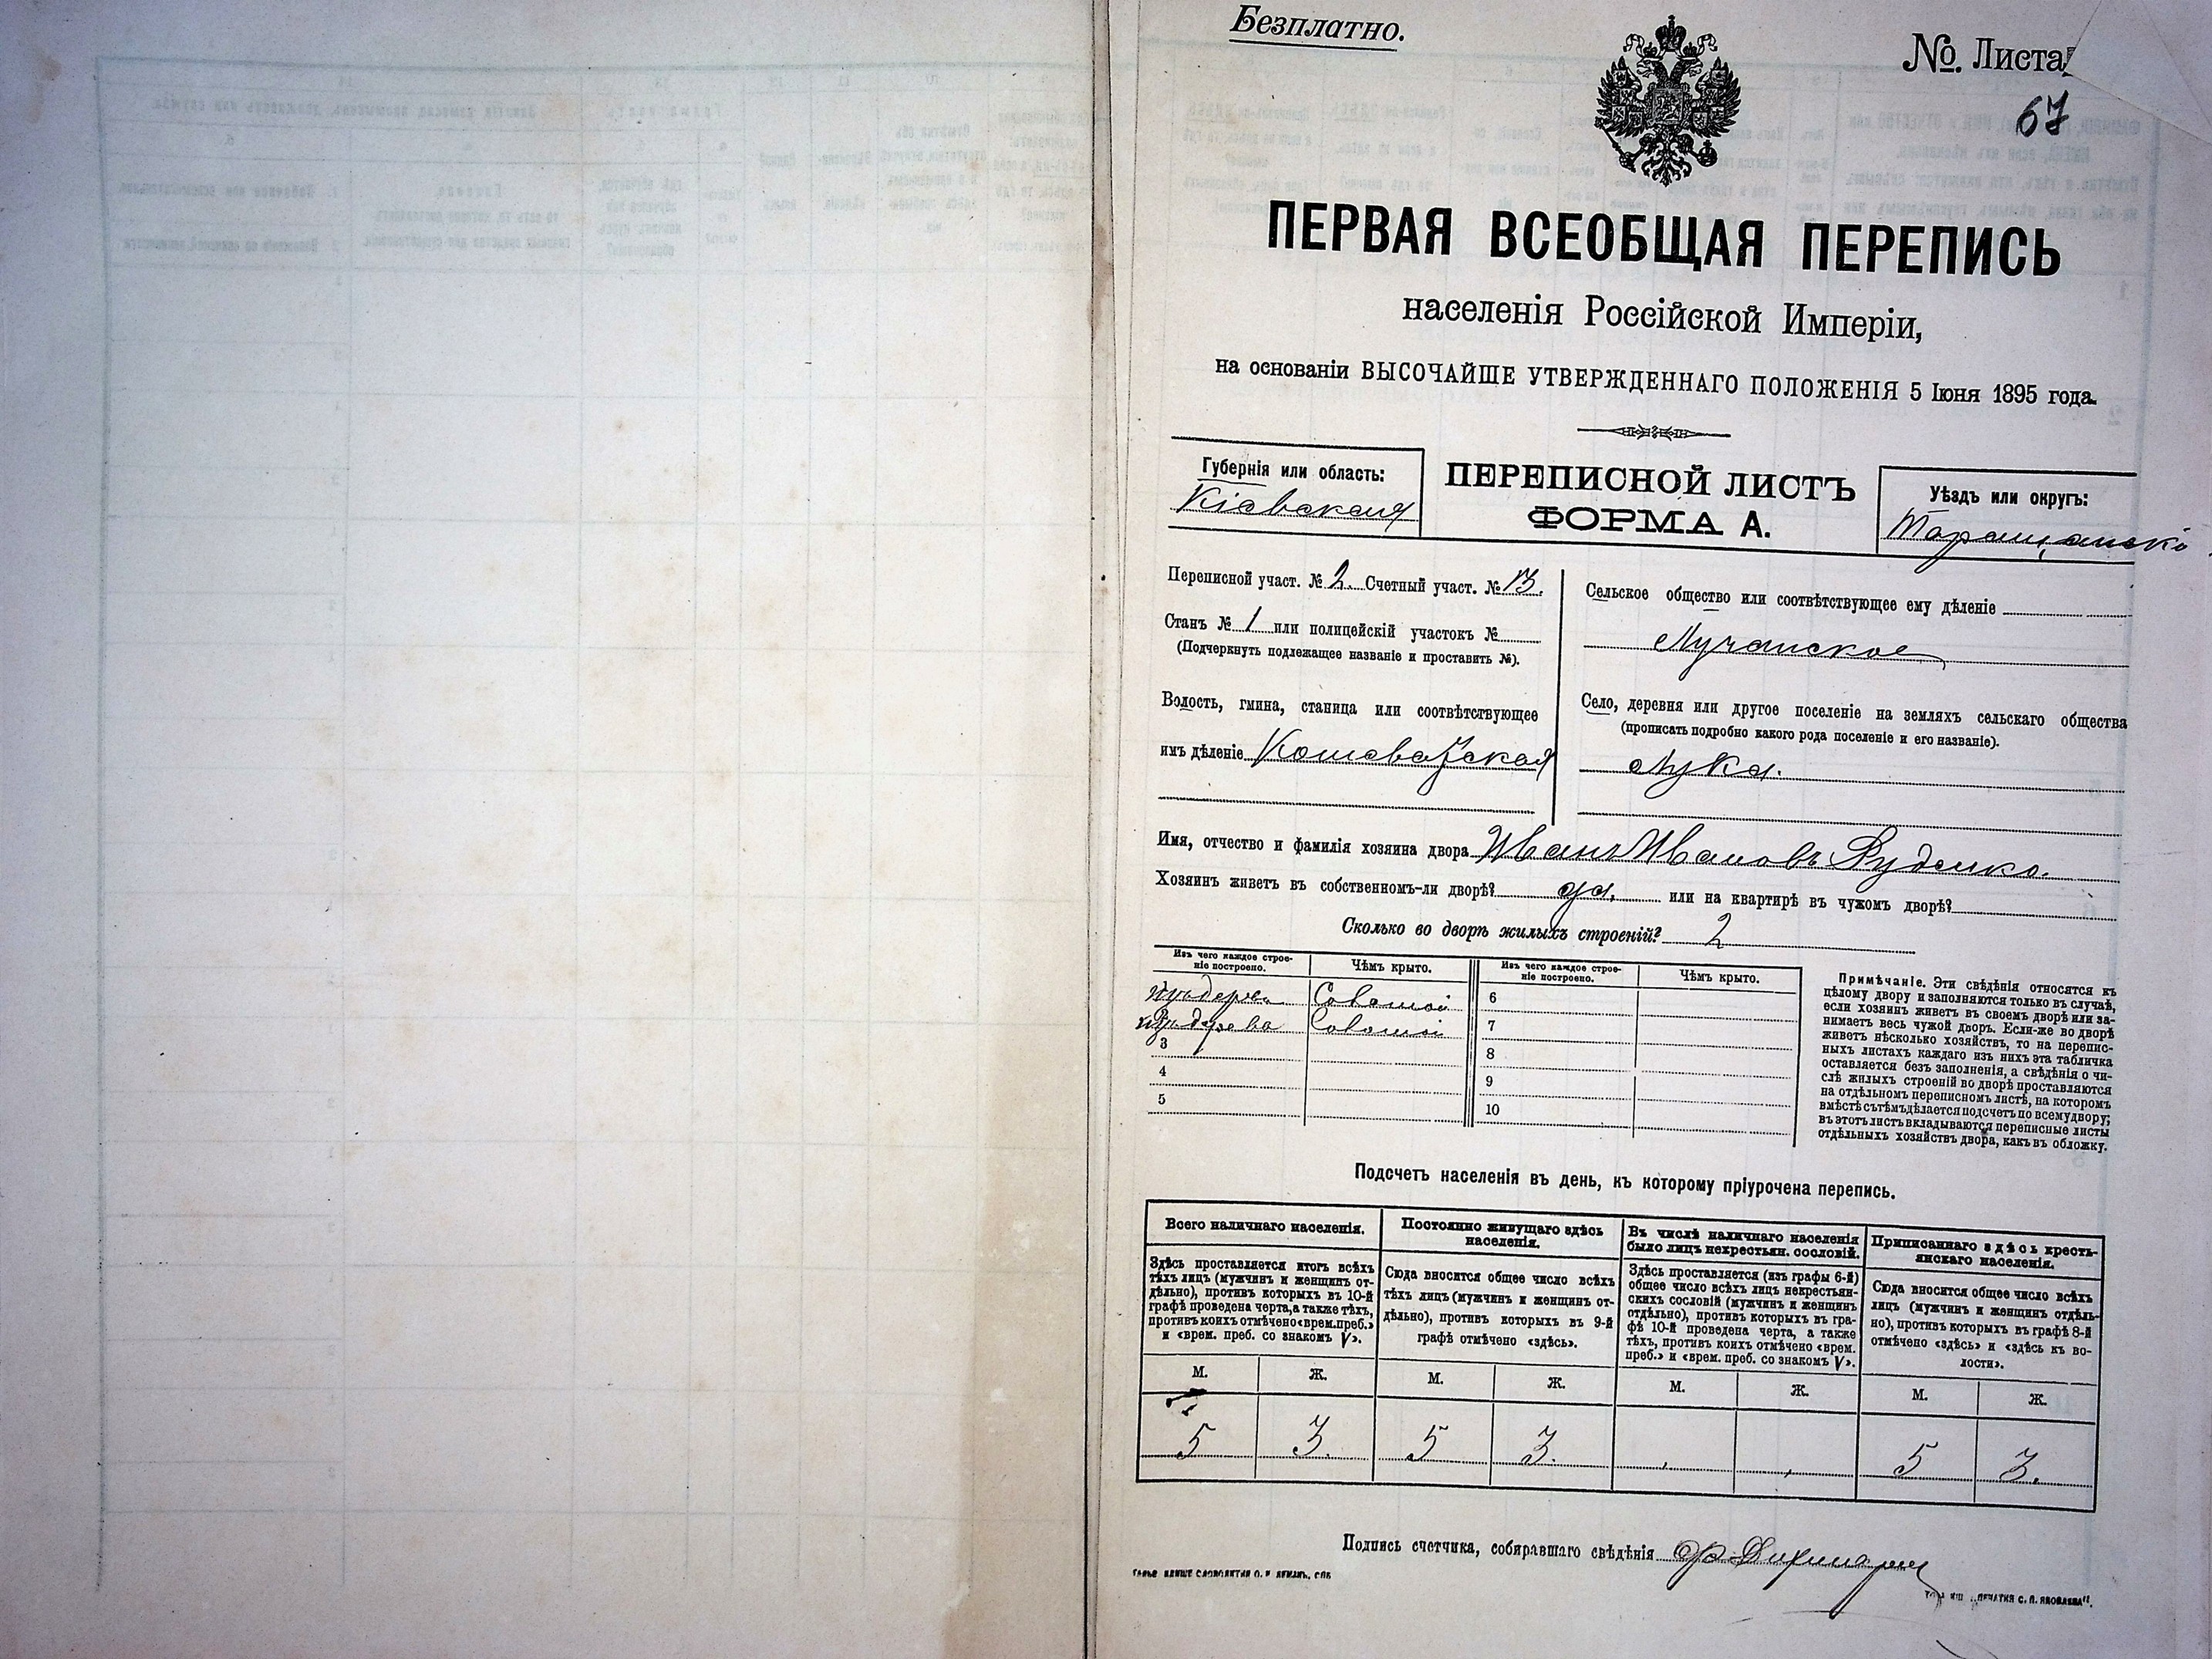 Безплатно.
№. Листа
67
ПЕРВАЯ ВСЕОБЩАЯ ПЕРЕПИСЬ
населенія Россійской Имперіи,
на основаніи ВЫСОЧАЙШЕ УТВЕРЖДЕННАГО ПОЛОЖЕНІЯ 5 Іюня 1895 года.
Губернія или область:
Кіевская
ПЕРЕПИСНОЙ ЛИСТЪ
ФОРМА А.
Уѣздъ или округъ:
Таращанскі
Переписной участ. № 2. Счетный участ. № 13.
Станъ № 1 или полицейскій участокъ №
(Подчеркнуть подлежащее названіе и проставить №).
Волость, гмина, станица или соотвѣтствующее
имъ дѣленіе Кошеватская
Сельское общество или соотвѣтствующее ему дѣленіе
Лучанское
Село, деревня или другое поселеніе на земляхъ сельскаго общества
(прописать подробно какого рода поселеніе и его названіе).
Лука.
Имя, отчество и фамилія хозяина двора Иванъ Ивановъ Руденко.
Хозяинъ живетъ въ собственномъ-ли дворѣ? да, или на квартирѣ въ чужомъ дворѣ?
Сколько во дворѣ жилыхъ строеній? 2
Изъ чего каждое строе-
ніе построено.
Чѣмъ крыто.
Изъ чего каждое строе-
ніе построено.
Чѣмъ крыто.
изъ дерева Соломой 6
изъ дерева Соломой 7
3 8
4 9
5 10
Примѣчаніе. Эти свѣдѣнія относятся къ
цѣлому двору и заполняются только въ случаѣ,
если хозяинъ живетъ въ своемъ дворѣ или за-
нимаетъ весь чужой дворъ. Если-же во дворѣ
живетъ нѣсколько хозяйствъ, то на перепис-
ныхъ листахъ каждаго изъ нихъ эта табличка
оставляется безъ заполненія, а свѣдѣнія о чи-
слѣ жилыхъ строеній во дворѣ проставляются
на отдѣльномъ переписномъ листѣ, на которомъ
вмѣстѣ съ тѣмъ дѣлается подсчетъ по всему двору;
въ этотъ листъ вкладываются переписные листы
отдѣльныхъ хозяйствъ двора, какъ въ обложку.
Подсчетъ населенія въ день, къ которому пріурочена перепись.
Всего наличнаго населенія.
Здѣсь проставляется итогъ всѣхъ
тѣхъ лицъ (мужчинъ и женщинъ от-
дѣльно), противъ которыхъ въ 10-й
графѣ проведена черта, а также тѣхъ,
противъ коихъ отмѣчено «врем. преб.»
и «врем. преб. со знакомъ V».
Постоянно живущаго здѣсь
населенія.
Сюда вносится общее число всѣхъ
тѣхъ лицъ (мужчинъ и женщинъ от-
дѣльно), противъ которыхъ въ 9-й
графѣ отмѣчено «здѣсь».
Въ числѣ наличнаго населенія
было лицъ некрестьян. сословій.
Здѣсь проставляется (изъ графы 6-й)
общее число всѣхъ лицъ некрестьян-
скихъ сословій (мужчинъ и женщинъ
отдѣльно), противъ которыхъ въ гра-
фѣ 10-й проведена черта, а также
тѣхъ, противъ коихъ отмѣчено «врем.
преб.» и «врем. преб. со знакомъ V».
Приписаннаго здѣсь кресть-
янскаго населенія.
Сюда вносится общее число всѣхъ
лицъ (мужчинъ и женщинъ отдѣль-
но), противъ которыхъ въ графѣ 8-й
отмѣчено «здѣсь» и «здѣсь къ во-
лости».
М. Ж. М. Ж. М. Ж. М. Ж.
5 3. 5 3. 5 3.
Подпись счетчика, собиравшаго свѣдѣнія